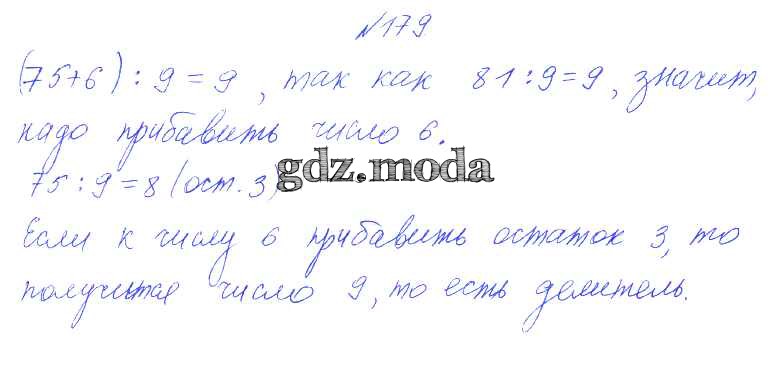 №179
(75+6) : 9 = 9, так как 81 : 9 = 9, значит,
надо прибавить число 6.
75 : 9 = 8 (ост. 3)
gdz.moda
Если к числу 6 прибавить остаток 3, то
получится число 9, то есть делитель.